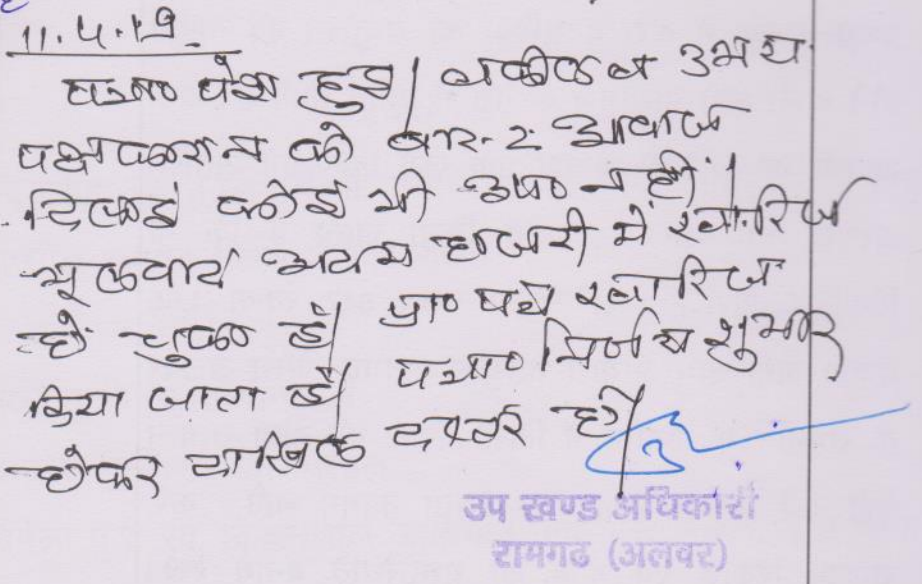 11.4.19
पत्रा० पेश हुई। वकीलान उभय
पक्षकारान को बार-2 आवाज
दिलाई कोई भी उपा० नहीं।
मूलवाद अदम हाजरी में खारिज
हो चुका है। प्रा० पत्र खारिज
किया जाता है। पत्रा० निर्णय शुमार
होकर दाखिल दफ्तर हो।
उप खण्ड अधिकारी
रामगढ (अलवर)